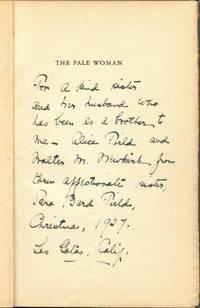 THE PALE WOMAN
For a kind sister
and her husband who
has been as a brother to
me — Alice Field and
Walter M. Newkirk, from
their affectionate sister,
Sara Bard Field,
Christmas, 1927.
Los Gatos, Calif.